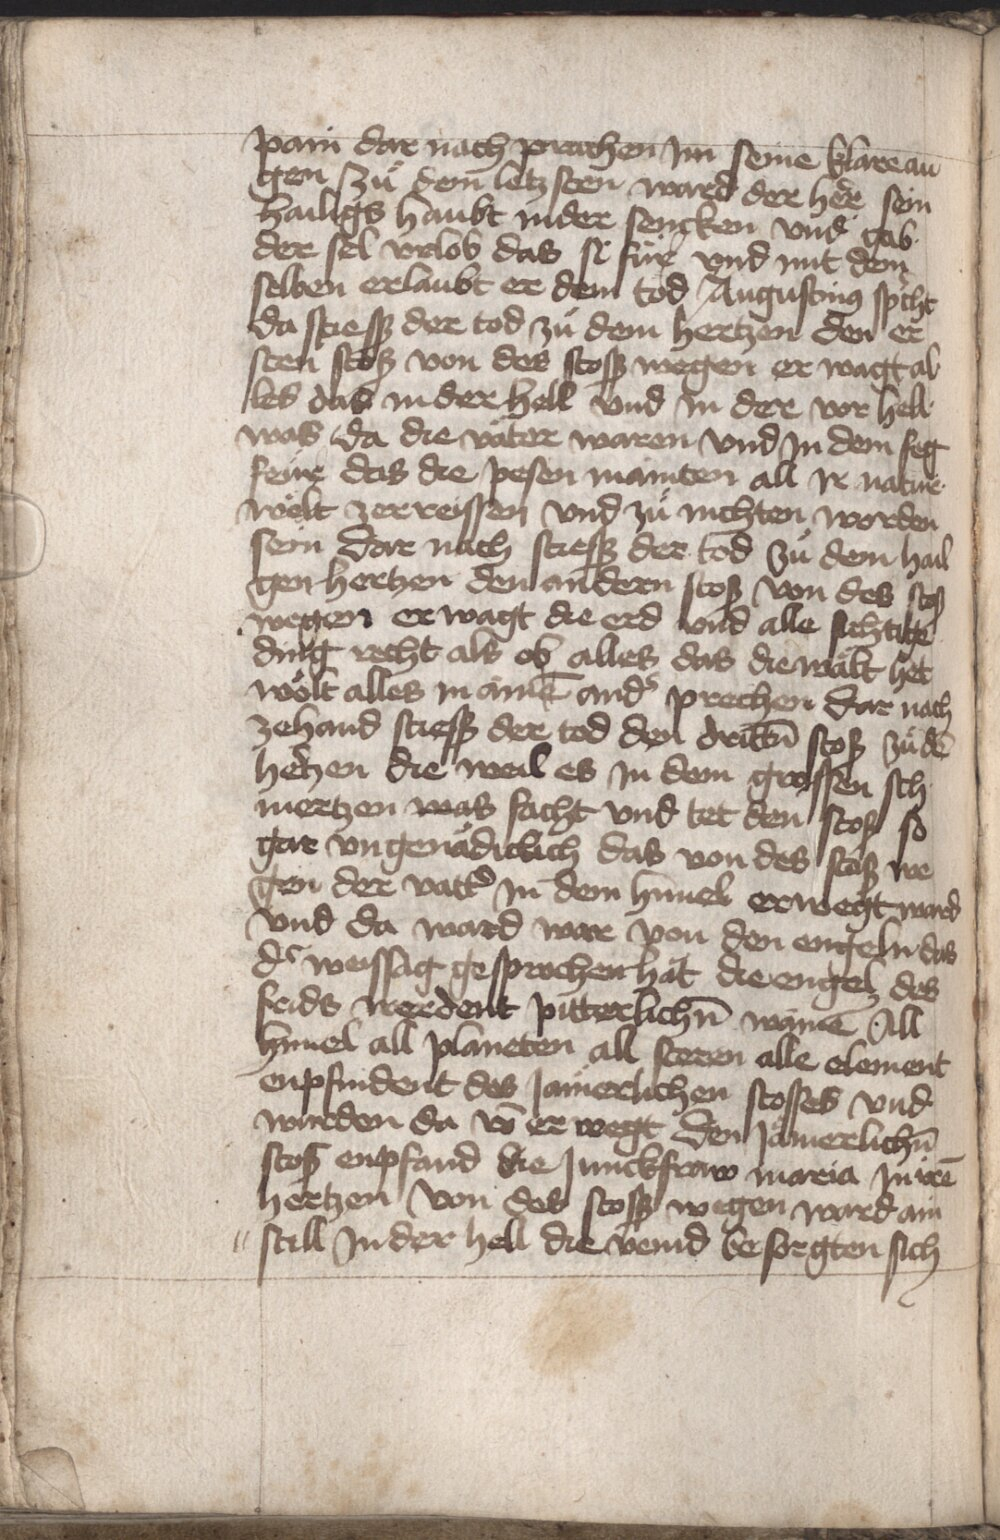 pain dar nach prachen im seine klare au
gen zů dem letzsten ward der her sein
hailigs haubt nider sencken vnd gab
der sel vrlob das si für vnd mit dem
selben erlaubt er dem tod Augustinus spͥcht
da stiess der tod zů dem hertzen den er
sten stoß von des stoss wegen er wagt al
les das in der hell vnd in der vor hell
was da die väter waren vnd in dem feg
feür das die pesen mainten all ir natur
wölt zerreissen vnd zů nichten worden
sein Dar nach stiess der tod zů dem hail
gen hertzen den andern stoß von des stoß
wegen er wagt die erd vnd alle sichtige
ding recht als ob alles das die wält het
wölt alles in ainē andˢ prechen Dar nach
zehand stiess der tod den drittn̄ stoß zů dē
herzen die weil es in dem grossen sch
mertzen was facht vnd tet den stoß so
gar vngenädiclich das von des stoß we
gen der vattˢ in dem himel erwegt ward
vnd da ward war von den engeln das
dˢ weissag gesprochen hat die engel des
frids werdent pitterlichn̄ wainē All
himel all planeten all steren alle element
enpfindent des Jamerlichen stosses vnd
wurden da vō er wegt Den Jämerlichn̄
stoß enpfand die Junckfraw maria in irē
hertzen Von des stoss wegen ward ain
still In der hell die veind besorgten sich